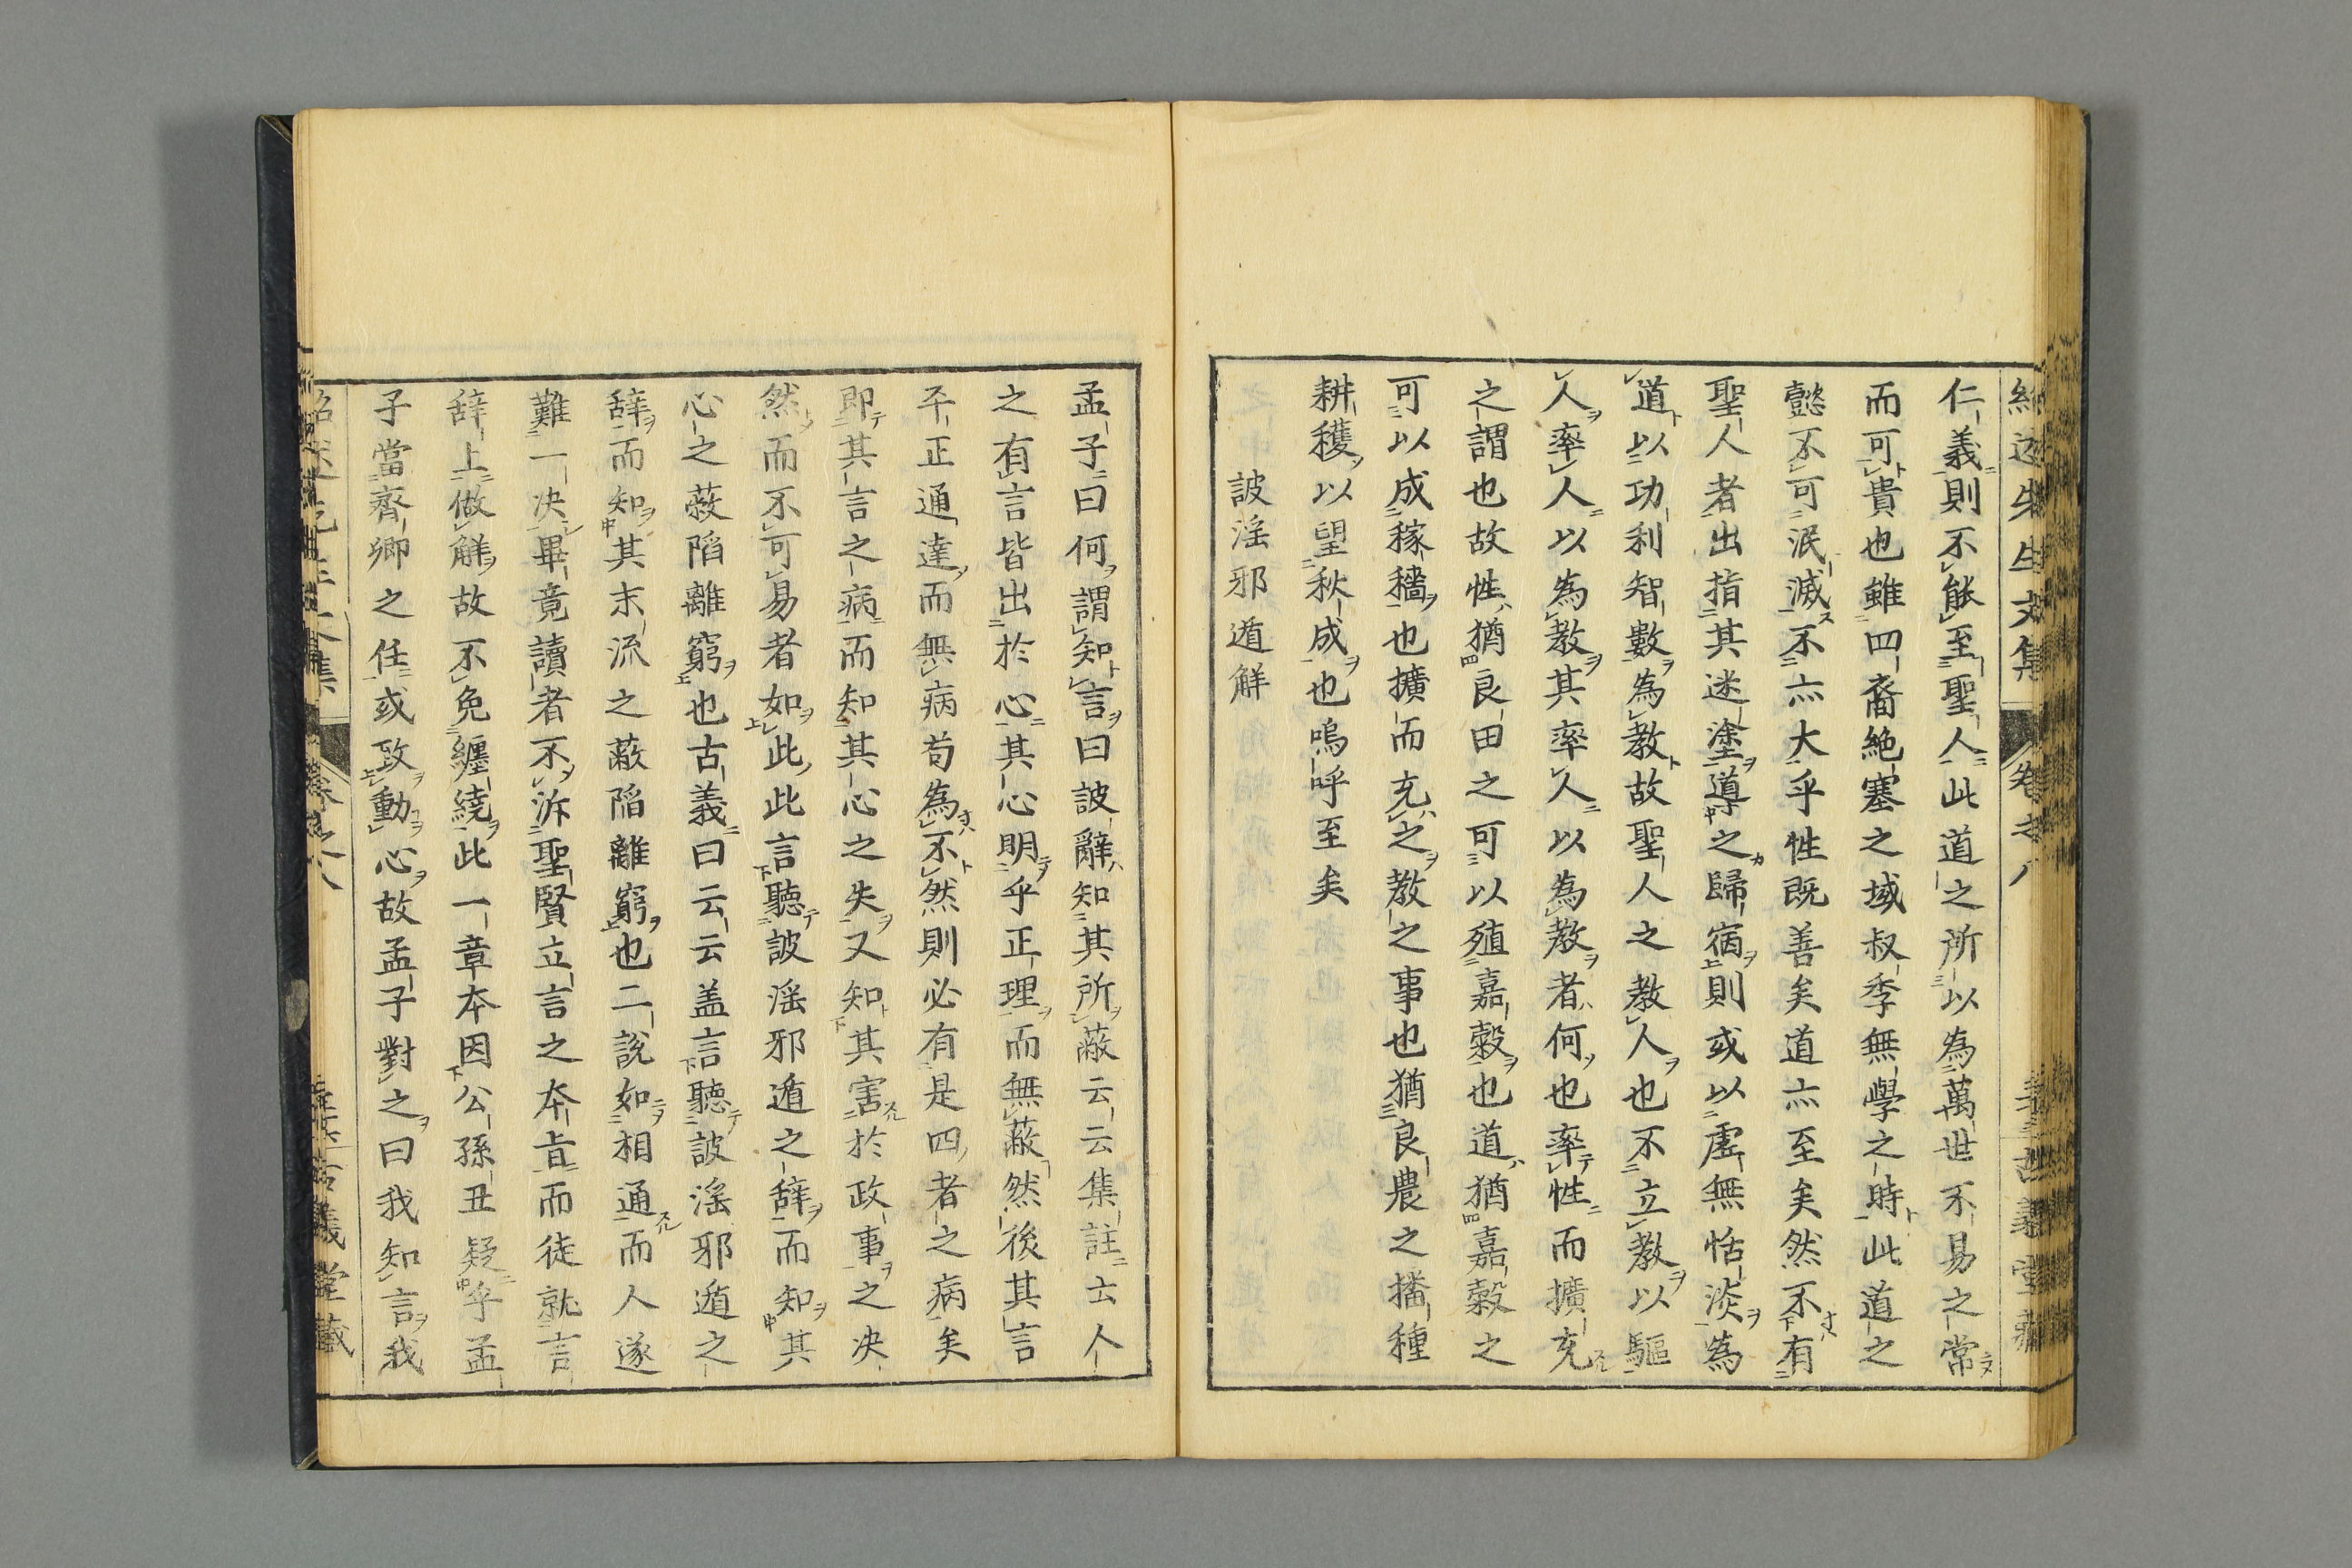 仁義則不能至聖人此道之所以為萬世不易之常
而可貴也雖四裔絶塞之域叔季無學之時此道之
懿不可泯滅不亦大乎性既善矣道亦至矣然不有
聖人者出指其迷塗導之歸宿則或以虛無恬淡為
道以功利智數為教故聖人之教人也不立教以驅
人率人以為教其率人以為教者何也率性而擴充
之謂也故性猶良田之可以殖嘉穀也道猶嘉穀之
可以成稼穡也擴而充之教之事也猶良農之播種
耕穫以望秋成也嗚呼至矣
詖淫邪遁解
孟子曰何謂知言曰詖辭知其所蔽云云集註士人
之有言皆出於心其心明乎正理而無蔽然後其言
平正通達而無病苟為不然則必有是四者之病矣
即其言之病而知其心之失又知其害於政事之决
然而不可易者如此此言聽詖淫邪遁之辞而知其
心之蔽陷離窮也古義曰云云盖言聽詖淫邪遁之
辞而知其末流之蔽陷離窮也二說如相通而人遂
難一决畢竟讀者不泝聖賢立言之本旨而徒就言
辞上做解故不免纏繞此一章本因公孫丑疑乎孟
子當齊卿之任或致動心故孟子對之曰我知言我